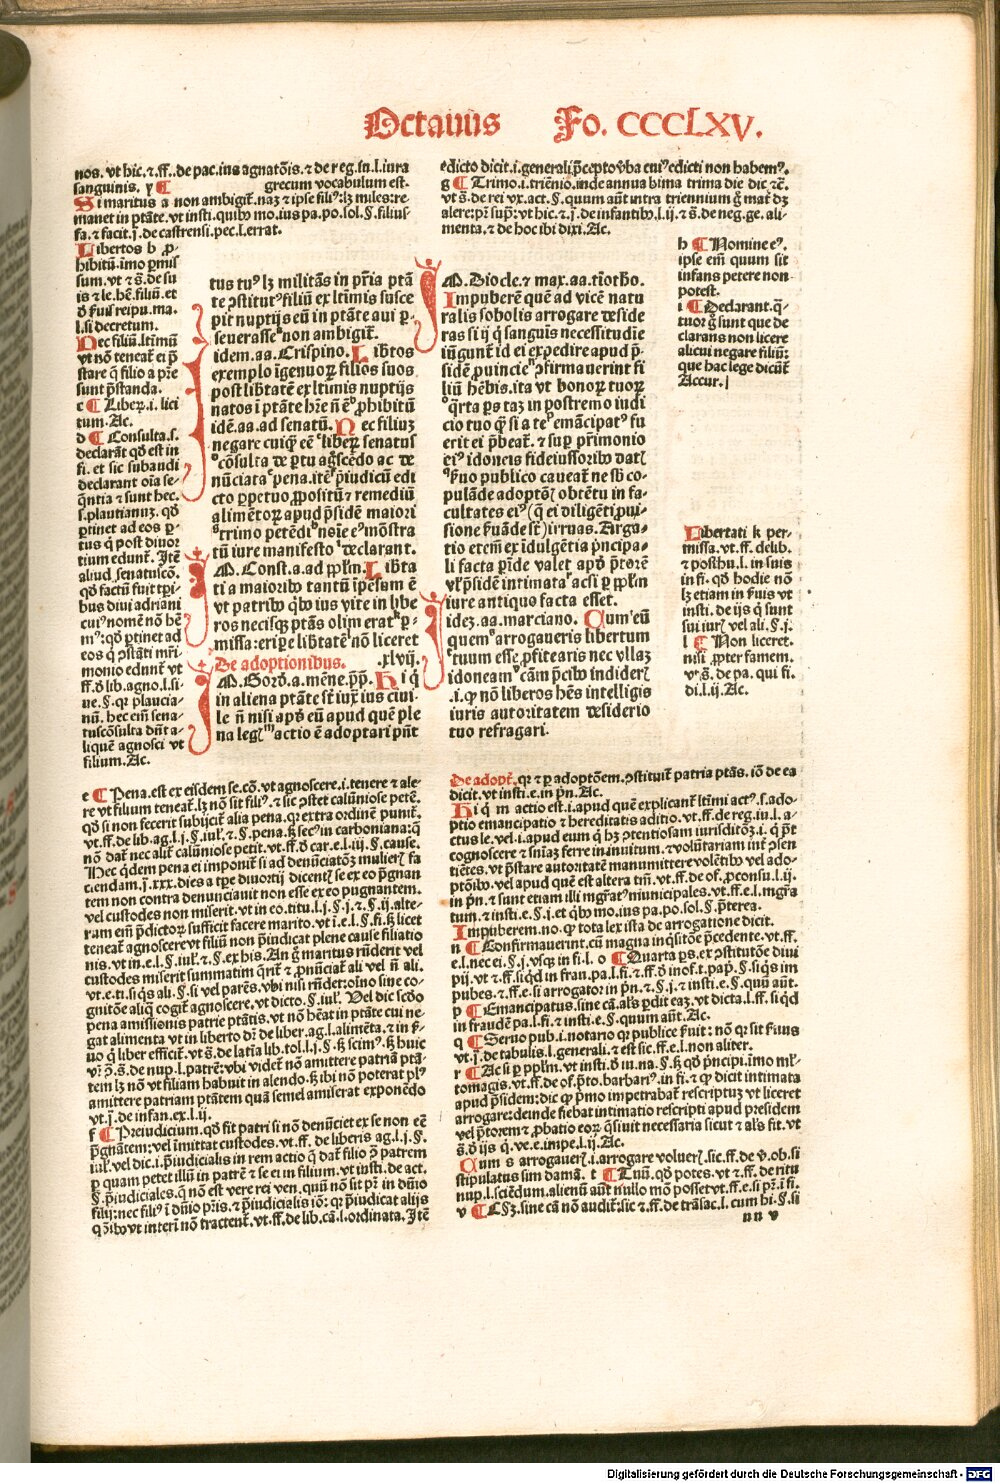 Octauus Fo. CCCCLXV.
nos. vt hic. ⁊ ff. de pac. ius agnatōis. ⁊ de reg. in. l. iura
sanguinis. y ¶ grecum vocabulum est.
Si maritus a non ambigit̄. naꝫ ⁊ ipse filiꝰ: lꝫ miles: re-
manet in ptāte. vt insti. quibꝰ mo. ius pa. po. sol. §. filius
fa. ⁊ facit. j̄. de castrensi. pec. l. errat.
Libertos b ꝓ-
hibitū. īmo ꝑmis
sum. vt ⁊ s̄. de su
is ⁊ le. hē. filiū. et
l. si decretum.
Nec filiū. ltīmū
vt nō teneat̄ ei p̄
stare q̄ filio a pr̄e
sunt p̄standa.
c ¶ Liberꝝ. i. lici
tum. Ac.
d ¶ Consulta. s.
declarāt qd̄ est in
fi. et sic subaudi
declarant oīa se-
q̄ntia ⁊ sunt hec.
s. plautianuꝫ. qd̄
ꝑtinet ad eos ꝑ-
tus q̄ post diuor
tium edunt̄. Itē
aliud senatuscō.
qd̄ factū fuit tꝑi-
bus diui adriani
cuiꝰ nomē nō hē
mꝰ: qd̄ ꝑtinet ad
eos q̄ ꝯstāti mr̄i
monio ednnt̄ vt
ff. d̄ lib. agno. l. si-
ue. §. qꝛ plaucia-
nū. hec em̄ sena-
tuscōsulta dn̄t a-
liquē agnosci vt
filium. Ac.
tus tuꝰ lꝫ militās in pr̄ia ptā
te ꝯstitutꝰ filiū ex ltīmis susce
pit nuptijs eū in ptāte aui ꝑ-
seuerasse non ambigit̄.
idem. aa. Crispino. Libtos
exemplo īgenuoꝝ filios suos
post libtatē ex ltīmis nuptijs
natos i ptāte hr̄e nō ē ꝓhibitū
idē. aa. ad senatū. Nec filiuꝫ
negare cuiqꝫ eē liberꝝ senatus
cōsulta de ꝑtu agscēdo ac de
nūciata pena. itē p̄iudicū edi
cto ꝑpetuo ꝓpositū ⁊ remediū
alimētoꝝ apud p̄sidē maiori
trimo petēdi noīe eꝰ mōstra
tū iure manifesto declarant.
M. Const. a. ad pplm̄. Libta
ti a maioribꝰ tantū īpēsum ē
vt patribꝰ qbꝰ ius vite in libe
ros necisqꝫ ptās olim erat ꝑ-
missa: eripe libtatē nō liceret
De adoptionibus. .xlvij.
M. Gord. a. mēne. p̄p. Hi q̄
in aliena ptāte st̄ iuxꝰ ius ciui-
le n̄ nisi apd̄ eū apud quē ple
na legꝭ actio ē adoptari pn̄t
edicto dicit. i. generali. p̄cepto v̄ba eniꝰ edicti non habemꝰ.
g ¶ Trimo. i. triēnio. inde annua bima trima die dic̄ ⁊c̄.
vt s̄. de rei vx. act. §. quum aūt intra triennium ḡ mat̄ dꝫ
alere: pr̄ sup̄: vt hic. ⁊ j̄. de infantibꝰ. l. ij. ⁊ s̄. de neg. ge. ali-
menta. ⁊ de hoc ibi dixi. Ac.
h ¶ Nomine eꝰ.
ipse em̄ quum sit
infans petere non
potest.
i ¶ Declarant. q̄-
tuor ḡ sunt que de
clarans non licere
alicui negare filiū:
que hac lege dicūt̄
Accur.
M. Diocle. ⁊ max. aa. tīotho.
Impuberē quē ad vicē natu
ralis sobolis arrogare deside
ras si ij q̄ sanguīs necessitudīe
iūgunt̄ id ei expedire apud p̄-
sidē ꝓuincie ꝯfirmauerint fi
liū hēbis. ita vt bonoꝝ tuoꝝ
qrta ps taꝫ in postremo iudi
cio tuo q̄ si a te emācipatꝰ fu
erit ei p̄beat̄. ⁊ suꝑ pr̄imonio
eiꝰ idoneis fideiussoribꝰ datꝭ
ẜuo publico caueat̄ ne sub co-
pulāde adoptōꝭ obtētu in fa-
cultates eiꝰ (q̄ ei diligēti ꝓui-
sione ẜuāde st̄) irruas. Arga-
tio etem̄ ex īdulgētia pncipa-
li facta ꝑīde valet apd̄ p̄torē
vl̄ p̄sidē intimata acsi ꝑ pplm̄
iure antiquo facta esset.
ideꝫ. aa. marciano. Cum eū
quem arrogaueris libertum
tuum esse ꝓfitearis nec vllaꝫ
idoneam cām p̄cibꝰ indideꝝ
.i. ꝙ nō liberos hēs intelligis
iuris autoritatem desiderio
tuo refragari.
Libertati k per-
missa. vt. ff. de lib.
⁊ posthu. l. in suis
in fi. qd̄ hodie nō
lꝫ etiam in ẜuis vt
insti. de ijs q̄ sunt
sui iurꝭ vel ali. §. j.
l ¶ Non liceret.
nisi ꝓpter famem.
vt s̄. de pa. qui fi.
di. l. ij. Ac.
e ¶ Pena. est ex eisdem se. cō. vt agnoscere. i. tenere ⁊ ale-
re vt filium teneat̄. lꝫ nō sit filiꝰ. ⁊ sic ꝯstet calūniose petē.
qd̄ si non fecerit subijcit̄ alia pena. qꝛ extra ordinē punit̄.
vt. ff. de lib. ag. l. j. §. iul. ⁊ §. pena. ẜꝫ secꝰ in carboniana: q̄
nō dat̄ nec alit̄ calūniose petit. vt. ff. d̄ car. e. l. iij. §. cause.
Hec q̄dem pena ei imponit̄ si ad denūciatōꝫ mulierꝭ fa
ciendam. j̄. xxx. dies a tꝑe diuortij dicentꝭ se ex eo p̄gnan
tem non contra denunciauit non esse ex eo pugnantem.
vel custodes non miserit. vt in eo. titu. l. j. §. j. ⁊ §. ij. alte-
ram em̄ p̄dictoꝝ sufficit facere marito. vt i. e. l. §. fi. ẜꝫ licet
teneat̄ agnoscere vt filiū non p̄iudicat plene cause filiatio
nis. vt in. e. l. §. iul. ⁊ §. ex his. An ḡ maritus rn̄derit vel
custodes miserit summatim q̄rit̄ ⁊ ꝓnūciat̄ ali vel n̄ ali.
vt. e. ti. si q̄s ali. §. si vel parēs. vbi nisi rn̄det: oīno sine co-
gnitōe aliq̄ cogit̄ agnoscere. vt dicto. §. iul. Vel dic scd̄o
pena amissionis patrie ptātis. vt nō hēat in ptāte cui ne-
gat alimenta vt in liberto dr̄ de liber. ag. l. alimēta. ⁊ in ẜ-
uo q̄ liber efficit̄. vt s̄. de latīa lib. tol. l. j. §. ẜꝫ scimꝰ. ẜꝫ huic
vr̄. ꝓ. s̄. de nup. l. patrē: vbi videt̄ nō amittere patriā ptā-
tem lꝫ nō vt filiam habuit in alendo. ẜꝫ ibi nō poterat plꝰ
amittere patriam ptātem quā semel amiserat exponēdo
vt. j̄. de infan. ex. l. ij.
f ¶ Preiudicium. qd̄ fit patri si nō denūciet ex se non eē
p̄gnātem: vel īmittat custodes. vt. ff. de liberis ag. l. j. §.
iul. vel dic. i. p̄iudicialis in rem actio q̄ dat̄ filio ꝯ patrem
ꝑ quam petet illū in patrē ⁊ se ei in filium. vt insti. de act.
§. p̄iudiciales. q̄ nō est vere rei ven. quū nō sit pr̄ in dn̄io
filij: nec filiꝰ ī dn̄io pr̄is. ⁊ p̄iudicialis iō: qꝛ p̄iudicat alijs
q̄oībꝰ vt interī nō tractent̄. vt. ff. de lib. cā. l. ordinata. Itē
De adopt̄. qꝛ ⁊ ꝑ adoptōem. ꝯstituit̄ patria ptās. iō de ea
dicit. vt insti. e. in pn̄. Ac.
Hi q̄ m actio est. i. apud quē explicant̄ ltīmi actꝰ. s. ado-
ptio emancipatio ⁊ hereditatis aditio. vt. ff. de reg. iu. l. a-
ctus le. vel. i. apud eum q̄ hꝫ ꝯtentiosam iurisditōꝫ. i. q̄ pn̄t
cognoscere ⁊ sn̄iaꝫ ferre in inuitum. ⁊ volūtariam int̄ ꝯsen
tiētes. vt p̄stare autoritatē manumittere volētibꝰ vel ado-
ptōībꝰ. vel apud quē est altera tm̄. vt. ff. de of. ꝓconsu. l. ij.
in pn̄. ⁊ sunt etiam illi mgr̄atꝰ municipales. vt ff. e. l. mgr̄a
tum. ⁊ insti. e. §. j. et q̄bꝰ mo. ius pa. po. sol. §. p̄terea.
Impuberem. no. ꝙ tota lex ista de arrogatione dicit.
n ¶ Confirmauerint. cū magna inq̄sitōe p̄cedente. vt. ff.
e. l. nec ei. §. j. vsqꝫ in fi. l. o ¶ Quarta ps. ex ꝯstitutōe diui
pij. vt ⁊ ff. si q̄d in fran. pa. l. fi. ⁊ ff. d̄ inof. t. pap̄. §. si q̄s im
pubes. ⁊ ff. e. si arrogatoꝛ in pn̄. ⁊ §. j. ⁊ insti. e. §. quū aūt.
p ¶ Emancipatus. sine cā. al's ꝑdit eaꝫ. vt dicta. l. ff. si q̄d
in fraudē pa. l. fi. ⁊ insti. e. §. quum aūt. Ac.
q ¶ Seruo pub. i. notario qꝛ publice ẜuit: nō qꝛ sit ẜuus
vt. j̄. de tabulis. l. generali. ⁊ est sic. ff. e. l. non aliter.
r ¶ Ac si ꝑ pplm̄. vt insti. d̄ iu. na. §. ẜꝫ qd̄ pncipi. īmo ml'-
tomagis. vt. ff. de of. p̄to. barbariꝰ. in fi. ⁊ ꝙ dicit intimata
apud p̄sidem: dic ꝙ pmo impetrabat̄ rescriptuꝫ vt liceret
arrogare: deinde fiebat intimatio rescripti apud presidem
vel p̄torem ⁊ ꝓbatio eoꝝ q̄ siuit necessaria sicut ⁊ al's fit. vt
s̄. d̄ ijs q̄. ve. e. impe. l. ij. Ac.
Cum s arrogauerꝭ. i. arrogare voluerꝭ. sic. ff. de v. ob. si
stipulatus sim damā. t ¶ Tuū. qd̄ potes. vt ⁊ ff. de ritu
nup. l. sciēdum. alienū aūt nullo mō posset vt. ff. e. si pr. i fi.
v ¶ Cꝫ. sine cā nō audit̄: sic ⁊ ff. de trāsac. l. cum hi. §. si
nn v
Digitalisierung gefördert durch die Deutsche Forschungsgemeinschaft - DFG